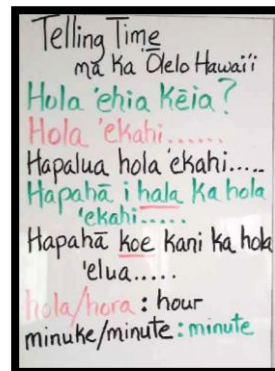 Telling Time
ma ka ʻŌlelo Hawaiʻi
Hola ʻehia Kēia?
Hola ʻekahi......
Hapalua hola ʻekahi.....
Hapahā i hala ka hola
ʻekahi.....
Hapahā koe kani ka hola
ʻelua.....
hola/hora : hour
minuke/minute : minute